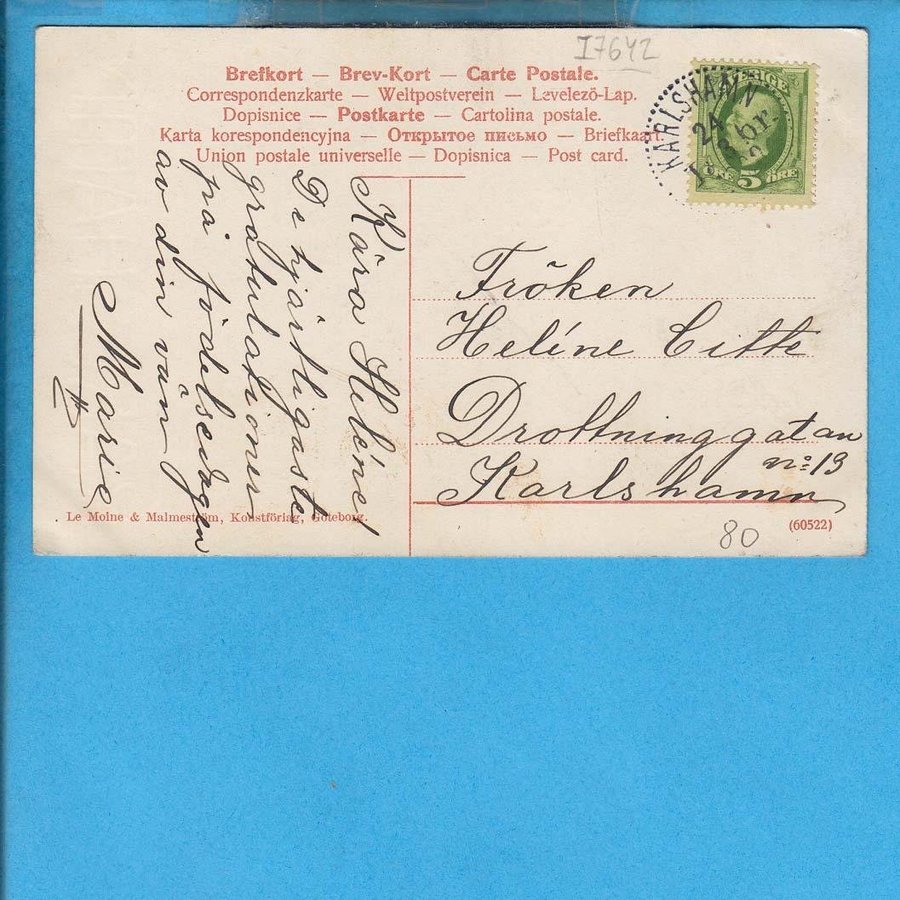 I7642
Brefkort — Brev-Kort — Carte Postale.
Correspondenzkarte — Weltpostverein — Levelező-Lap.
Dopisnice — Postkarte — Cartolina postale.
Karta korespondencyjna — Открытое письмо — Briefkaart.
Union postale universelle — Dopisnica — Post card.
KARLSHAMN
24
5 ÖRE
Kära Heléne!
De hjärtligaste
gratulationer
på födelsedagen
av din vän
Marie
Fröken
Heléne
Drottninggatan
no: 13
Karlshamn
Le Moine & Malmeström, Konstföring, Göteborg.
(60522)
80